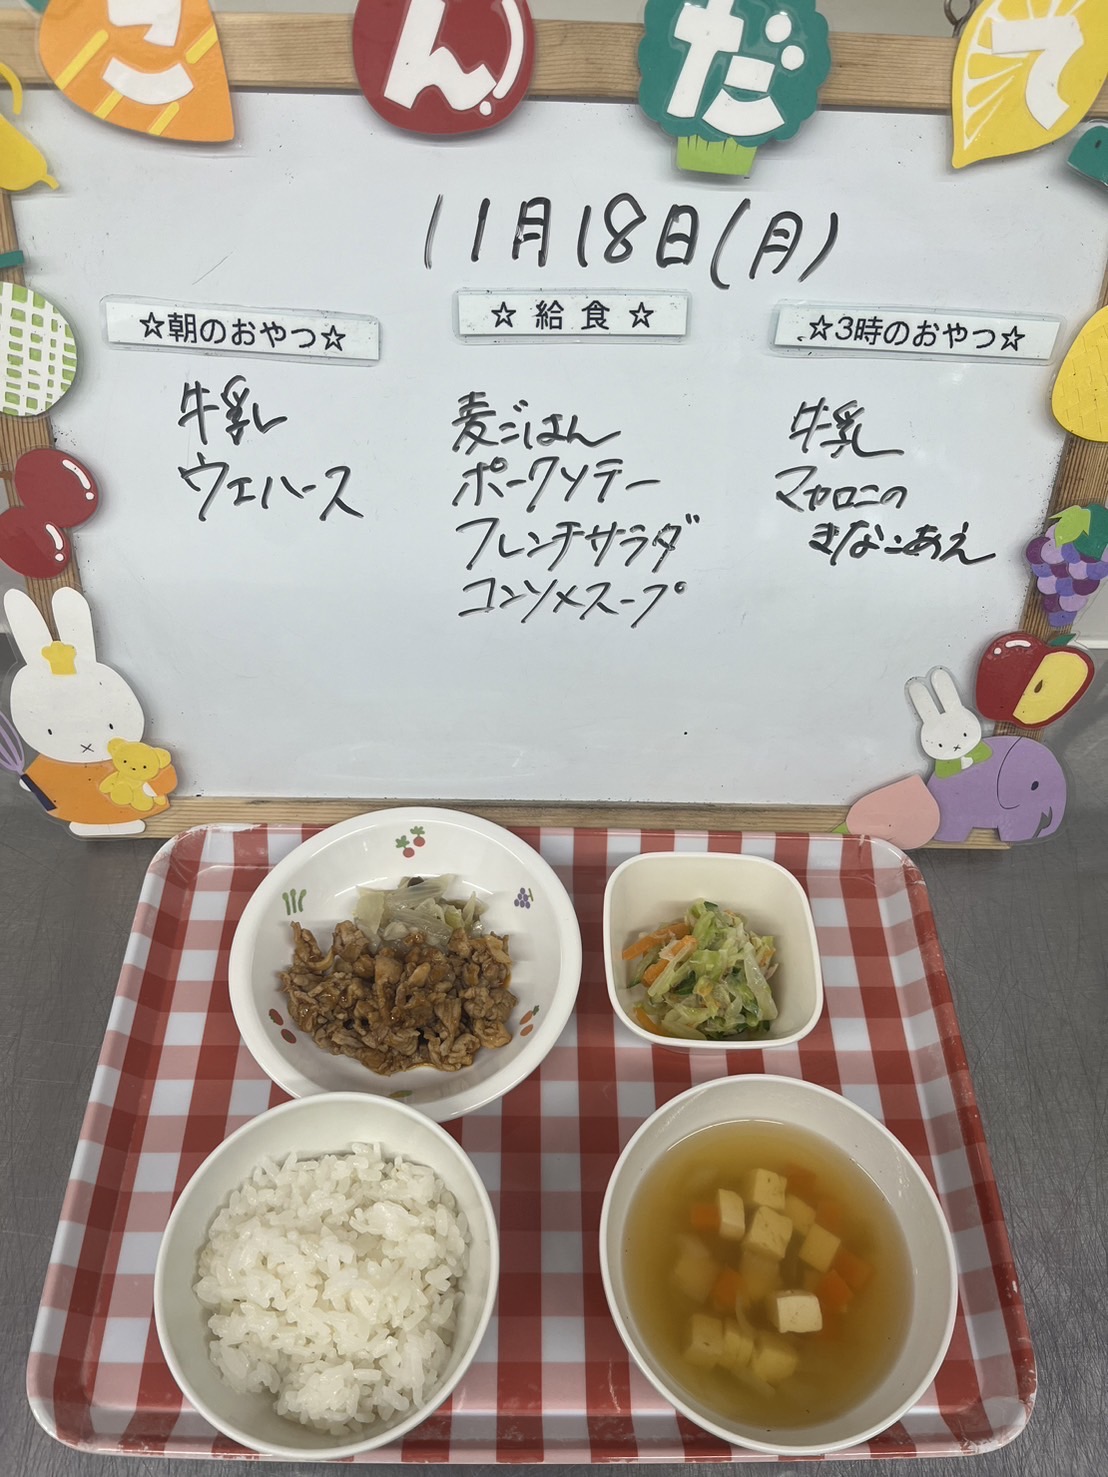 こんだて
11月18日(月)
☆朝のおやつ☆
牛乳
ウエハース
☆給食☆
麦ごはん
ポークソテー
フレンチサラダ
コンソメスープ
☆3時のおやつ☆
牛乳
マカロニの
きなこあえ